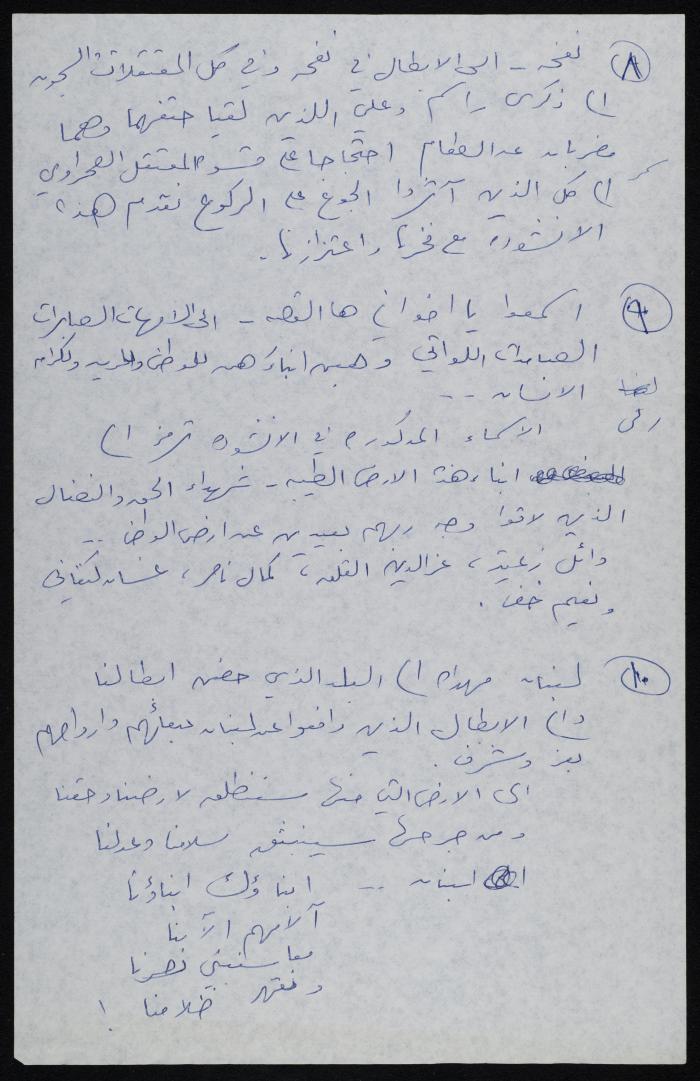 ٨ نفحه - الى الابطال في نفحه وفي كل المعتقلات والسجون
الى ذكرى راسم وعلي اللذين لقيا حتفهما وهما
مضربان عن الطعام احتجاجا على قسوة المعتقل الصحراوي
الى كل الذين آثروا الجوع على الركوع نقدم هذه
الانشوده مع فخرنا واعتزازنا .
٩ اسمعوا يا اخواني ها القصه - الى الامهات الصابرات
الصامدات اللواتي وهبن ابناءهن للوطن والحريه ولكرامه
الانسان ...
الاسماء المذكوره في الانشوده ترمز الى
ابناء هذه الارض الطيبه - شهداء الحق والنضال
الذين لاقوا وجه ربهم بعيدين عن ارض الوطن ...
وائل زعيتر ، عز الدين القلق ، كمال ناصر ، غسان كنفاني
ونعيم خضر .
١٠ لبنان مهداه الى البلد الذي حضن ابطالنا
والى الابطال الذين دافعوا عن لبنان بدمائهم وارواحهم
بعز وشرف .
الى الارض التي منها سننطلق لارضنا وحقنا
ومن جرحها سينبثق سلامنا وعدلنا
لبنان ... ابناؤك ابناؤنا
آلامهم آلامنا
معا سنبني نصرنا
ونقهر ظلامنا !